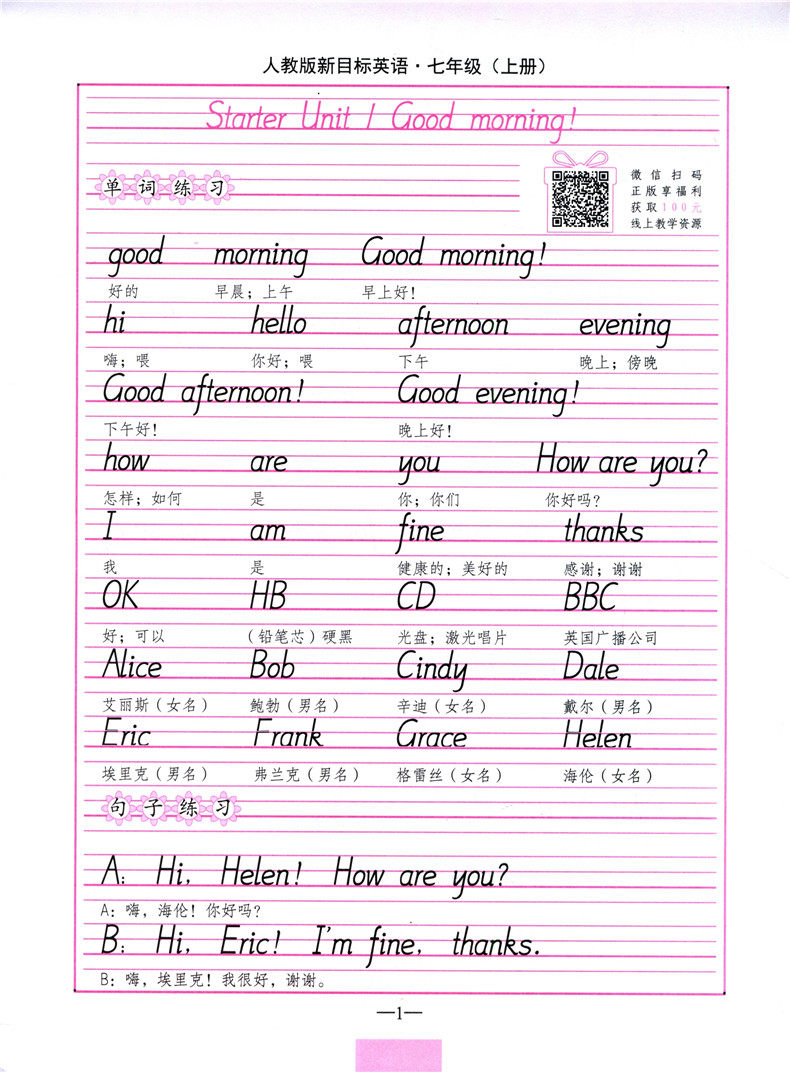 人教版新目标英语·七年级（上册）
Starter Unit 1 Good morning!
单词练习
微信扫码
正版享福利
获取100元
线上教学资源
good morning Good morning!
好的 早晨；上午 早上好！
hi hello afternoon evening
嗨；喂 你好；喂 下午 晚上；傍晚
Good afternoon! Good evening!
下午好！ 晚上好！
how are you How are you?
怎样；如何 是 你；你们 你好吗？
I am fine thanks
我 是 健康的；美好的 感谢；谢谢
OK HB CD BBC
好；可以 （铅笔芯）硬黑 光盘；激光唱片 英国广播公司
Alice Bob Cindy Dale
艾丽斯（女名） 鲍勃（男名） 辛迪（女名） 戴尔（男名）
Eric Frank Grace Helen
埃里克（男名） 弗兰克（男名） 格雷丝（女名） 海伦（女名）
句子练习
A: Hi, Helen! How are you?
A：嗨，海伦！你好吗？
B: Hi, Eric! I'm fine, thanks.
B：嗨，埃里克！我很好，谢谢。
—1—